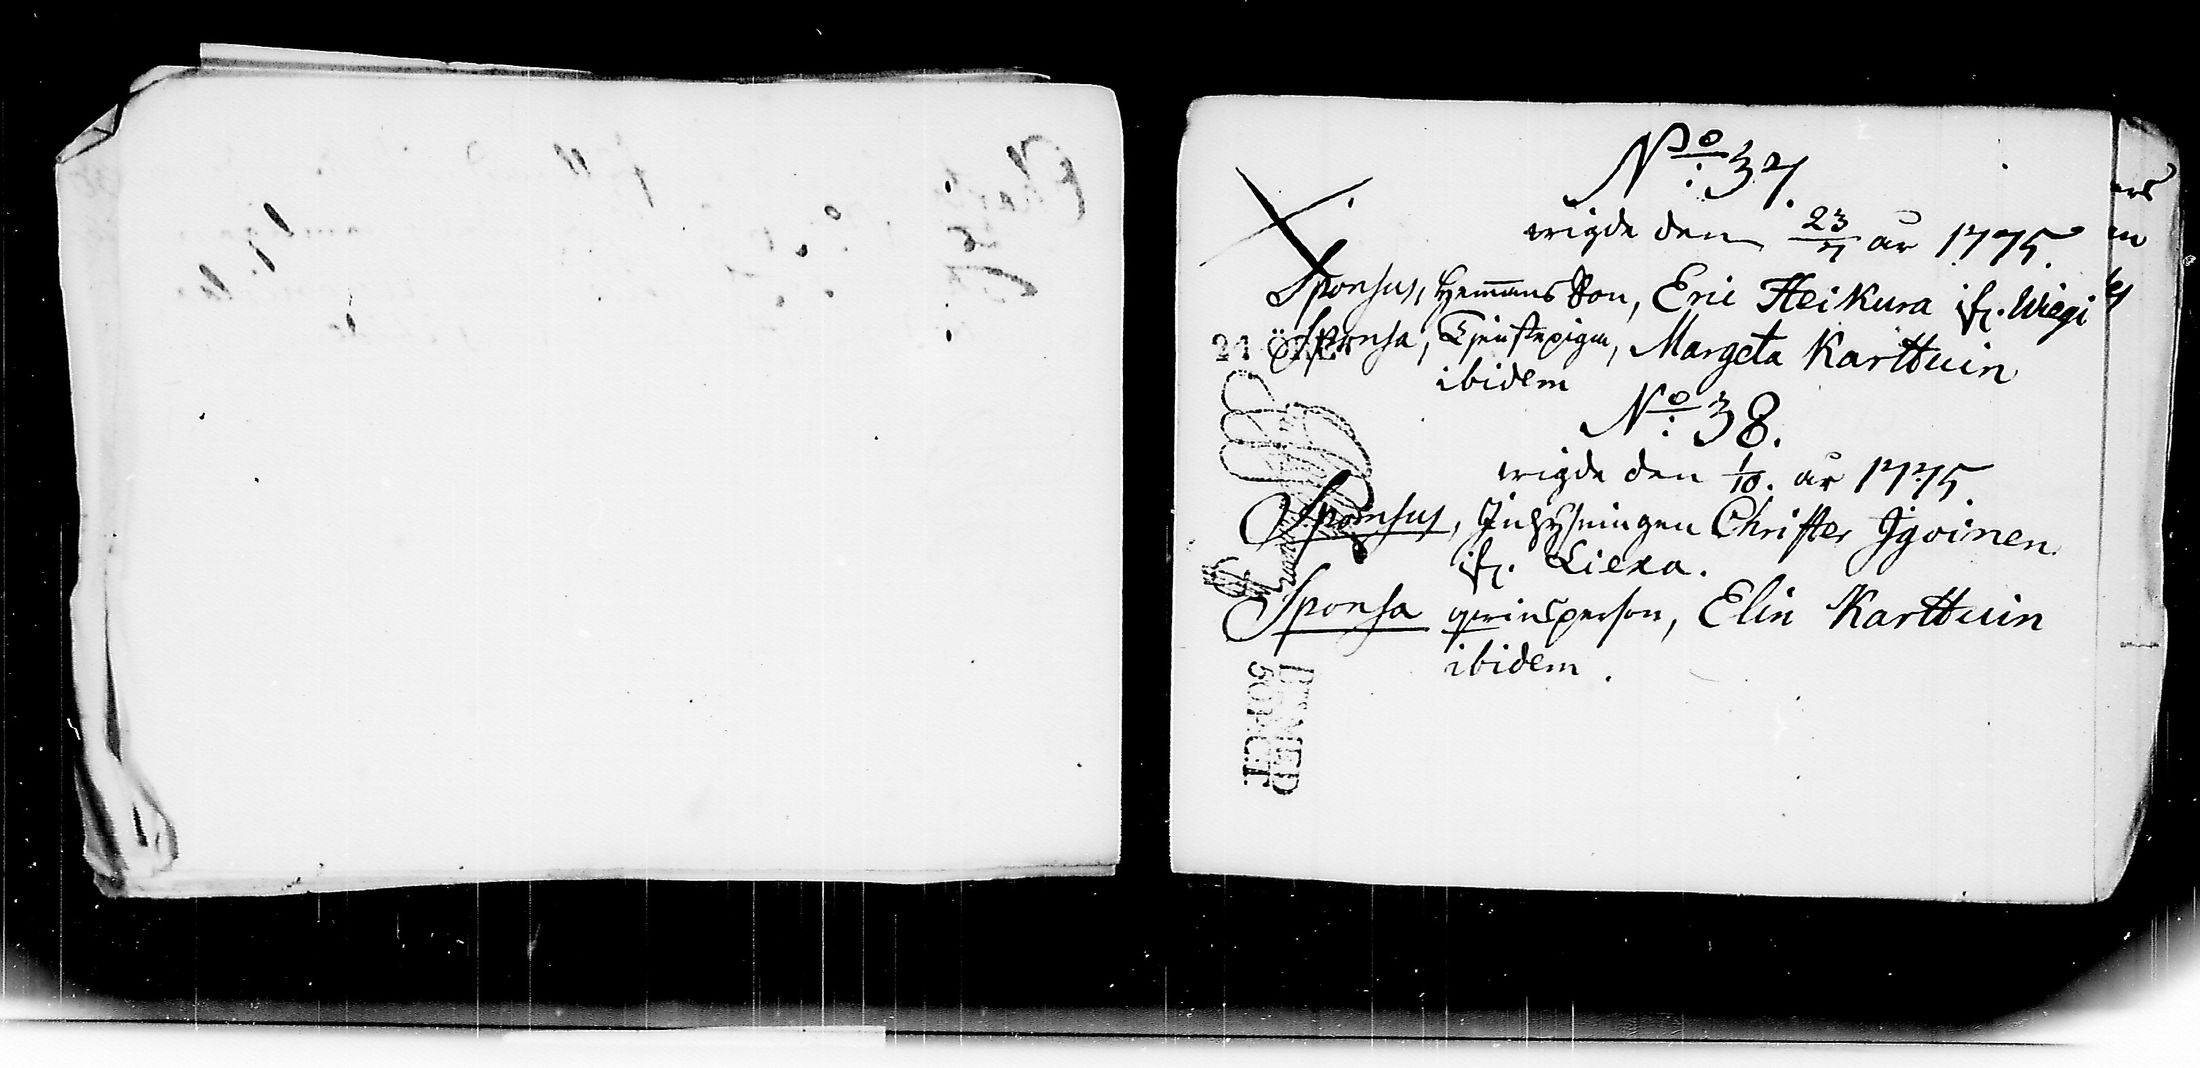 No: 37.
wigde den 23/7 år 1775.
Sponsus, Hemmans Son, Eric Heikura if. Wiegi
Sponsa, Tjenstepigan, Margeta Karttuin
ibidem
No: 38.
wigde den 1/10. år 1775.
Sponsus, Inhysningen Christer Igoinen
if. Liexa.
Sponsa qwinsperson, Elin Karttuin
ibidem.